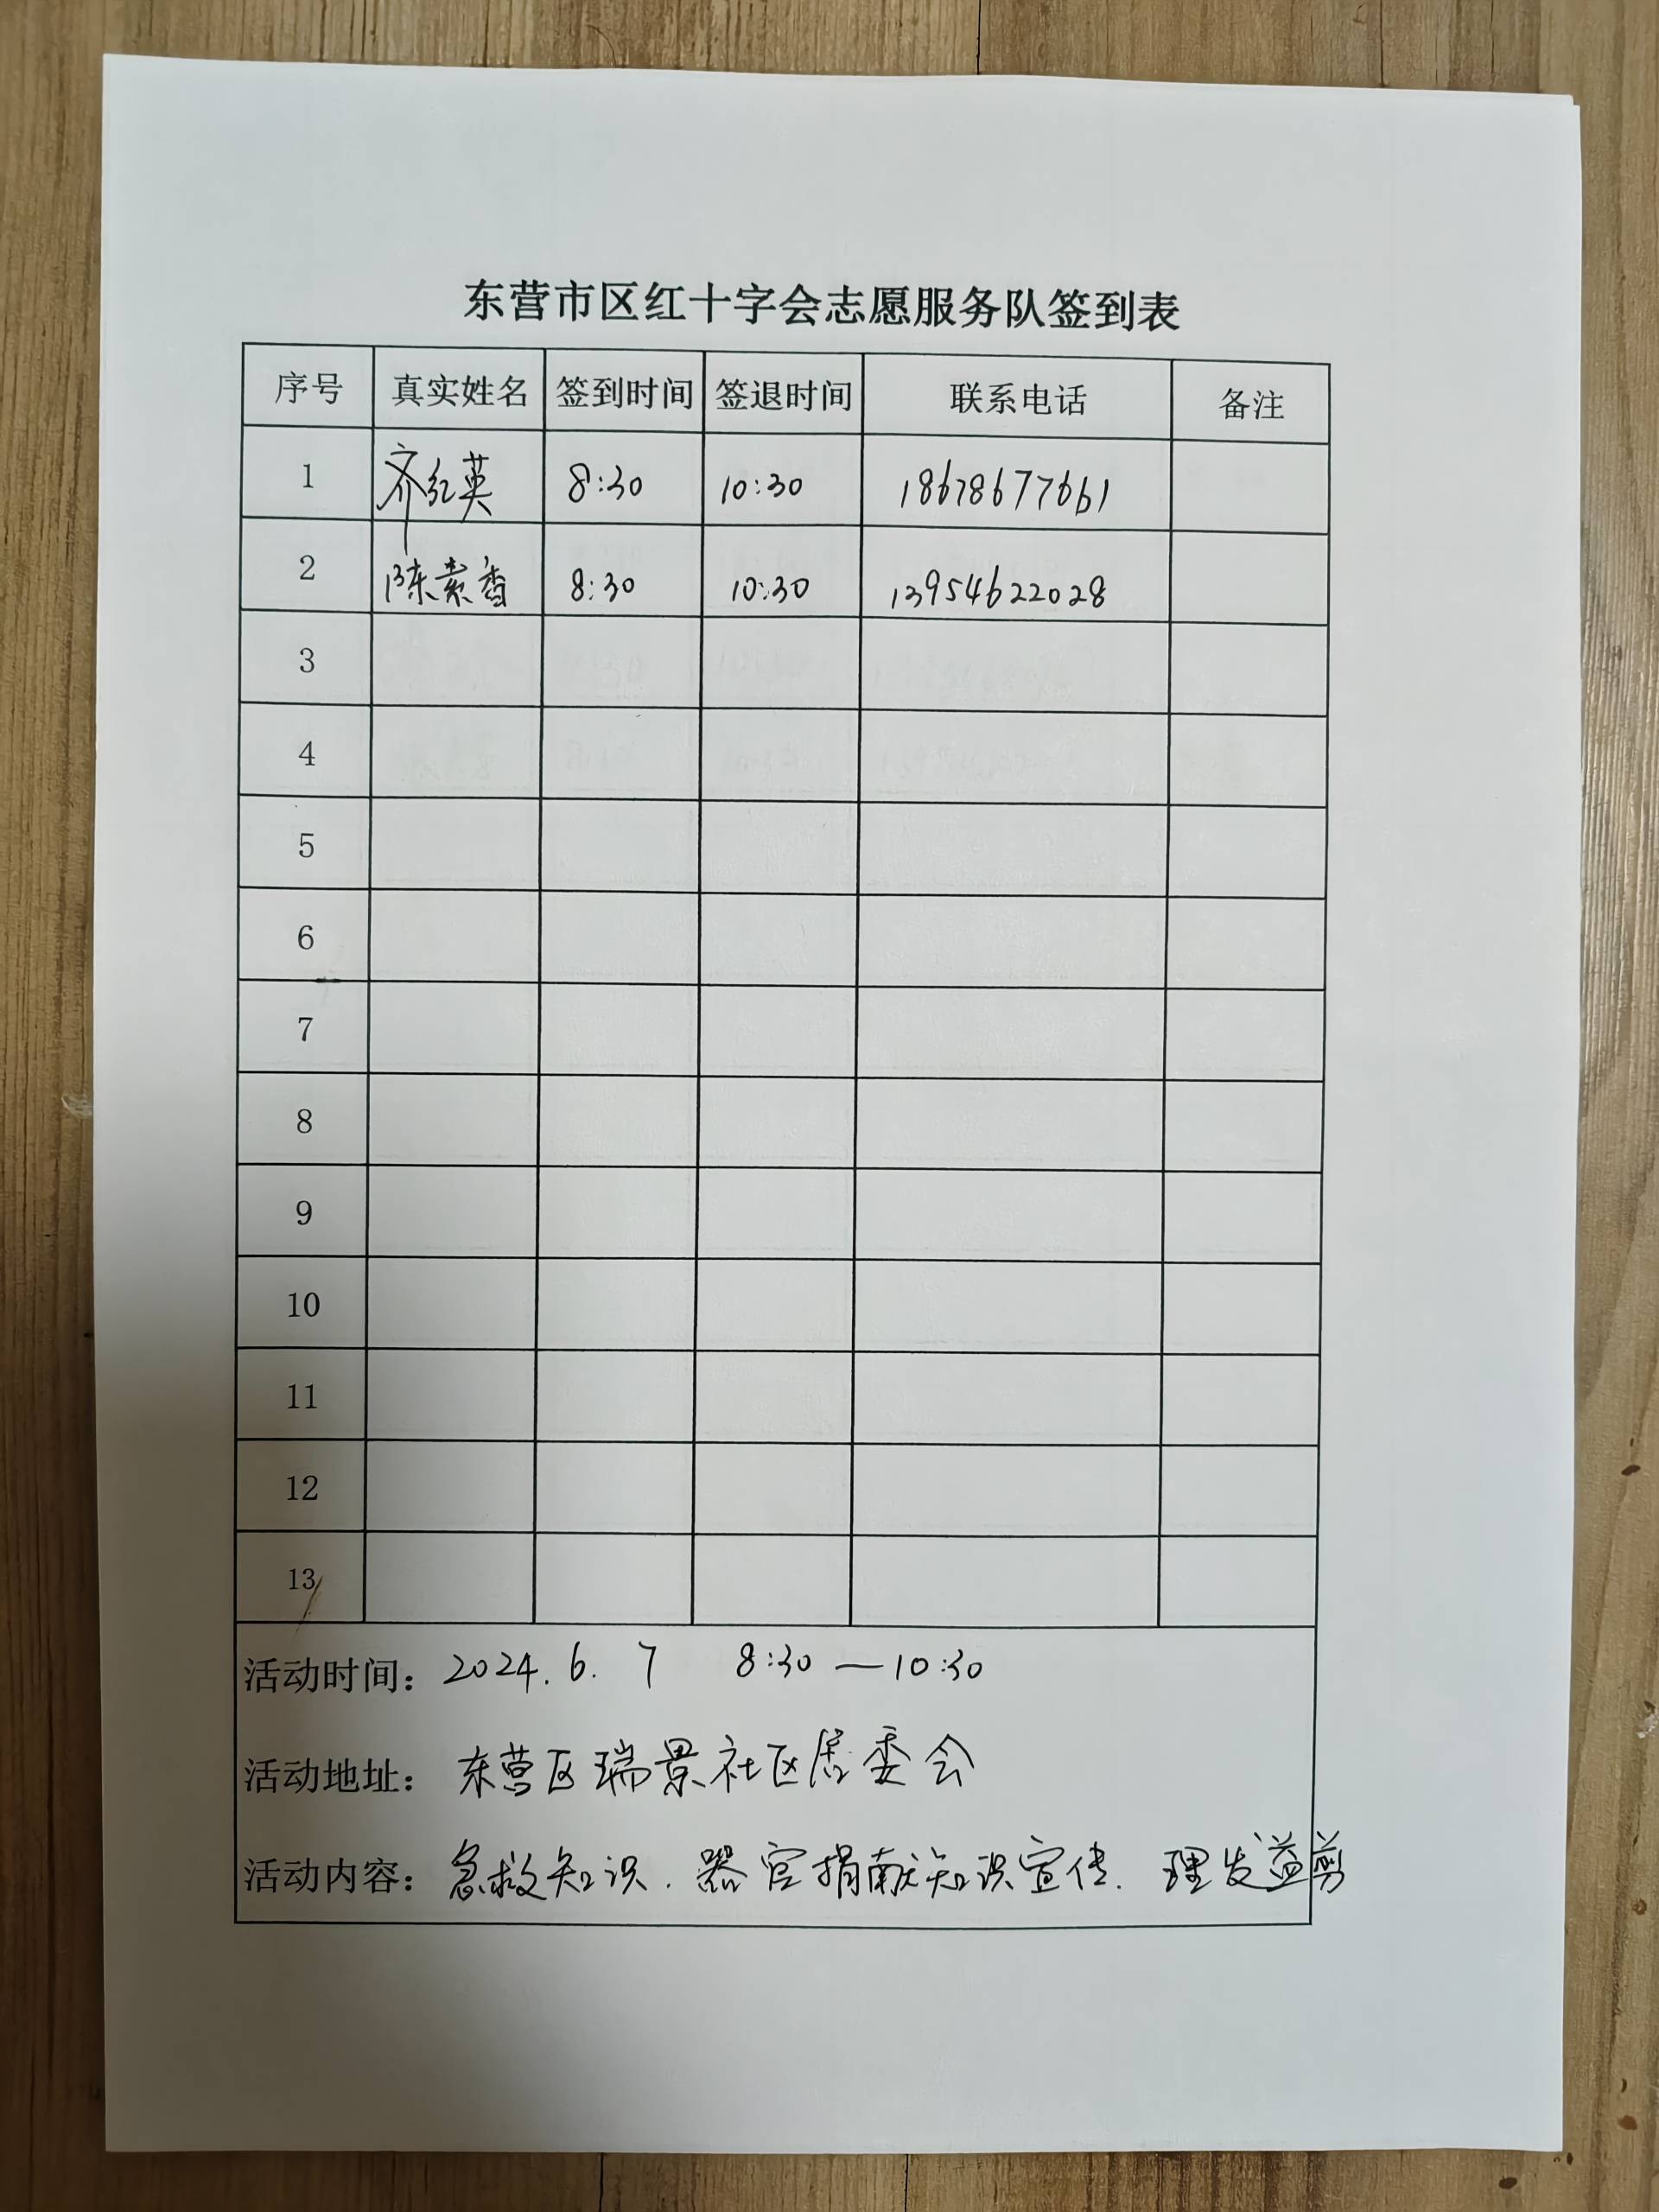 东营市区红十字会志愿服务队签到表
序号 真实姓名 签到时间 签退时间 联系电话 备注
1 齐红英 8:30 10:30 18678677661
2 陈素香 8:30 10:30 13954622028
3
4
5
6
7
8
9
10
11
12
13
活动时间：2024.6.7 8:30—10:30
活动地址：东营区瑞景社区居委会
活动内容：急救知识.器官捐献知识宣传.理发益剪